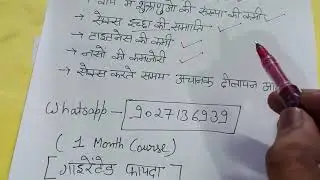 → वीर्य में शुक्राणुओं की संख्या की कमी ✓
→ सेक्स इच्छा की समाप्ति - ✓
→ टाइटनेस की कमी ✓ ✓
→ नसों की कमजोरी ✓
→ सेक्स करते समय अचानक ढीलापन आ
Whatsapp - 9027136939
( 1 Month Course)
[ गारंटेड फायदा